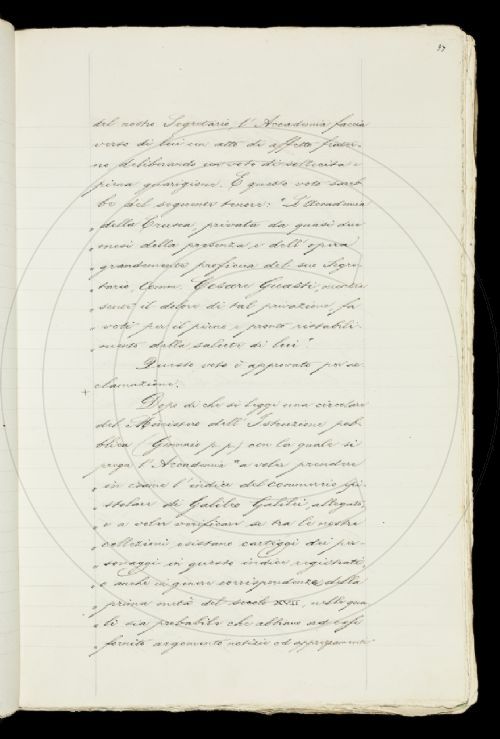 37
del nostro Segretario, l'Accademia faccia
verso di lui un atto di affetto frater-
no deliberando un voto di sollecita e
piena guarigione. E questo voto sareb-
be del seguente tenore: "L'Accademia
" della Crusca, privata da quasi due
" mesi della presenza e dell'opera
" grandemente proficua del suo Segre-
" tario, Comm. Cesare Guasti, mentre
" sente il dolore di tal privazione, fa
" voti per il pieno e pronto ristabili-
" mento della salute di lui".
Questo voto è approvato per ac-
clamazione.
+ Dopo di che si leggi una circolare
del Ministero dell'Istruzione pub-
blica (Gennaio p. p.) con la quale si
prega l'Accademia "a voler prendere
" in esame l'indice del commercio epi-
" stolare di Galileo Galilei, allegato,
" e a voler verificare se tra le nostre
" collezioni esistano carteggi dei per-
" sonaggi in questo indice registrati,
" o anche in genere corrispondenze della
" prima metà del secolo XVII, nelle qua-
" li sia probabile che abbiano ad esse
" fornito argomento notizie ed apprezzamenti